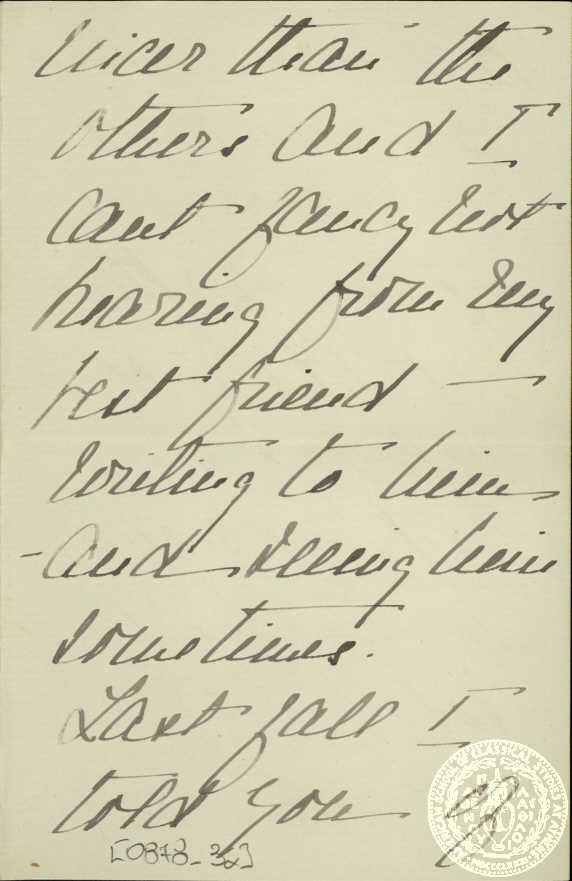 nicer than the
others and I
cant fancy not
hearing from my
best friend —
writing to him
- and seeing him
sometimes.
Last fall I
told you
[0878_32]